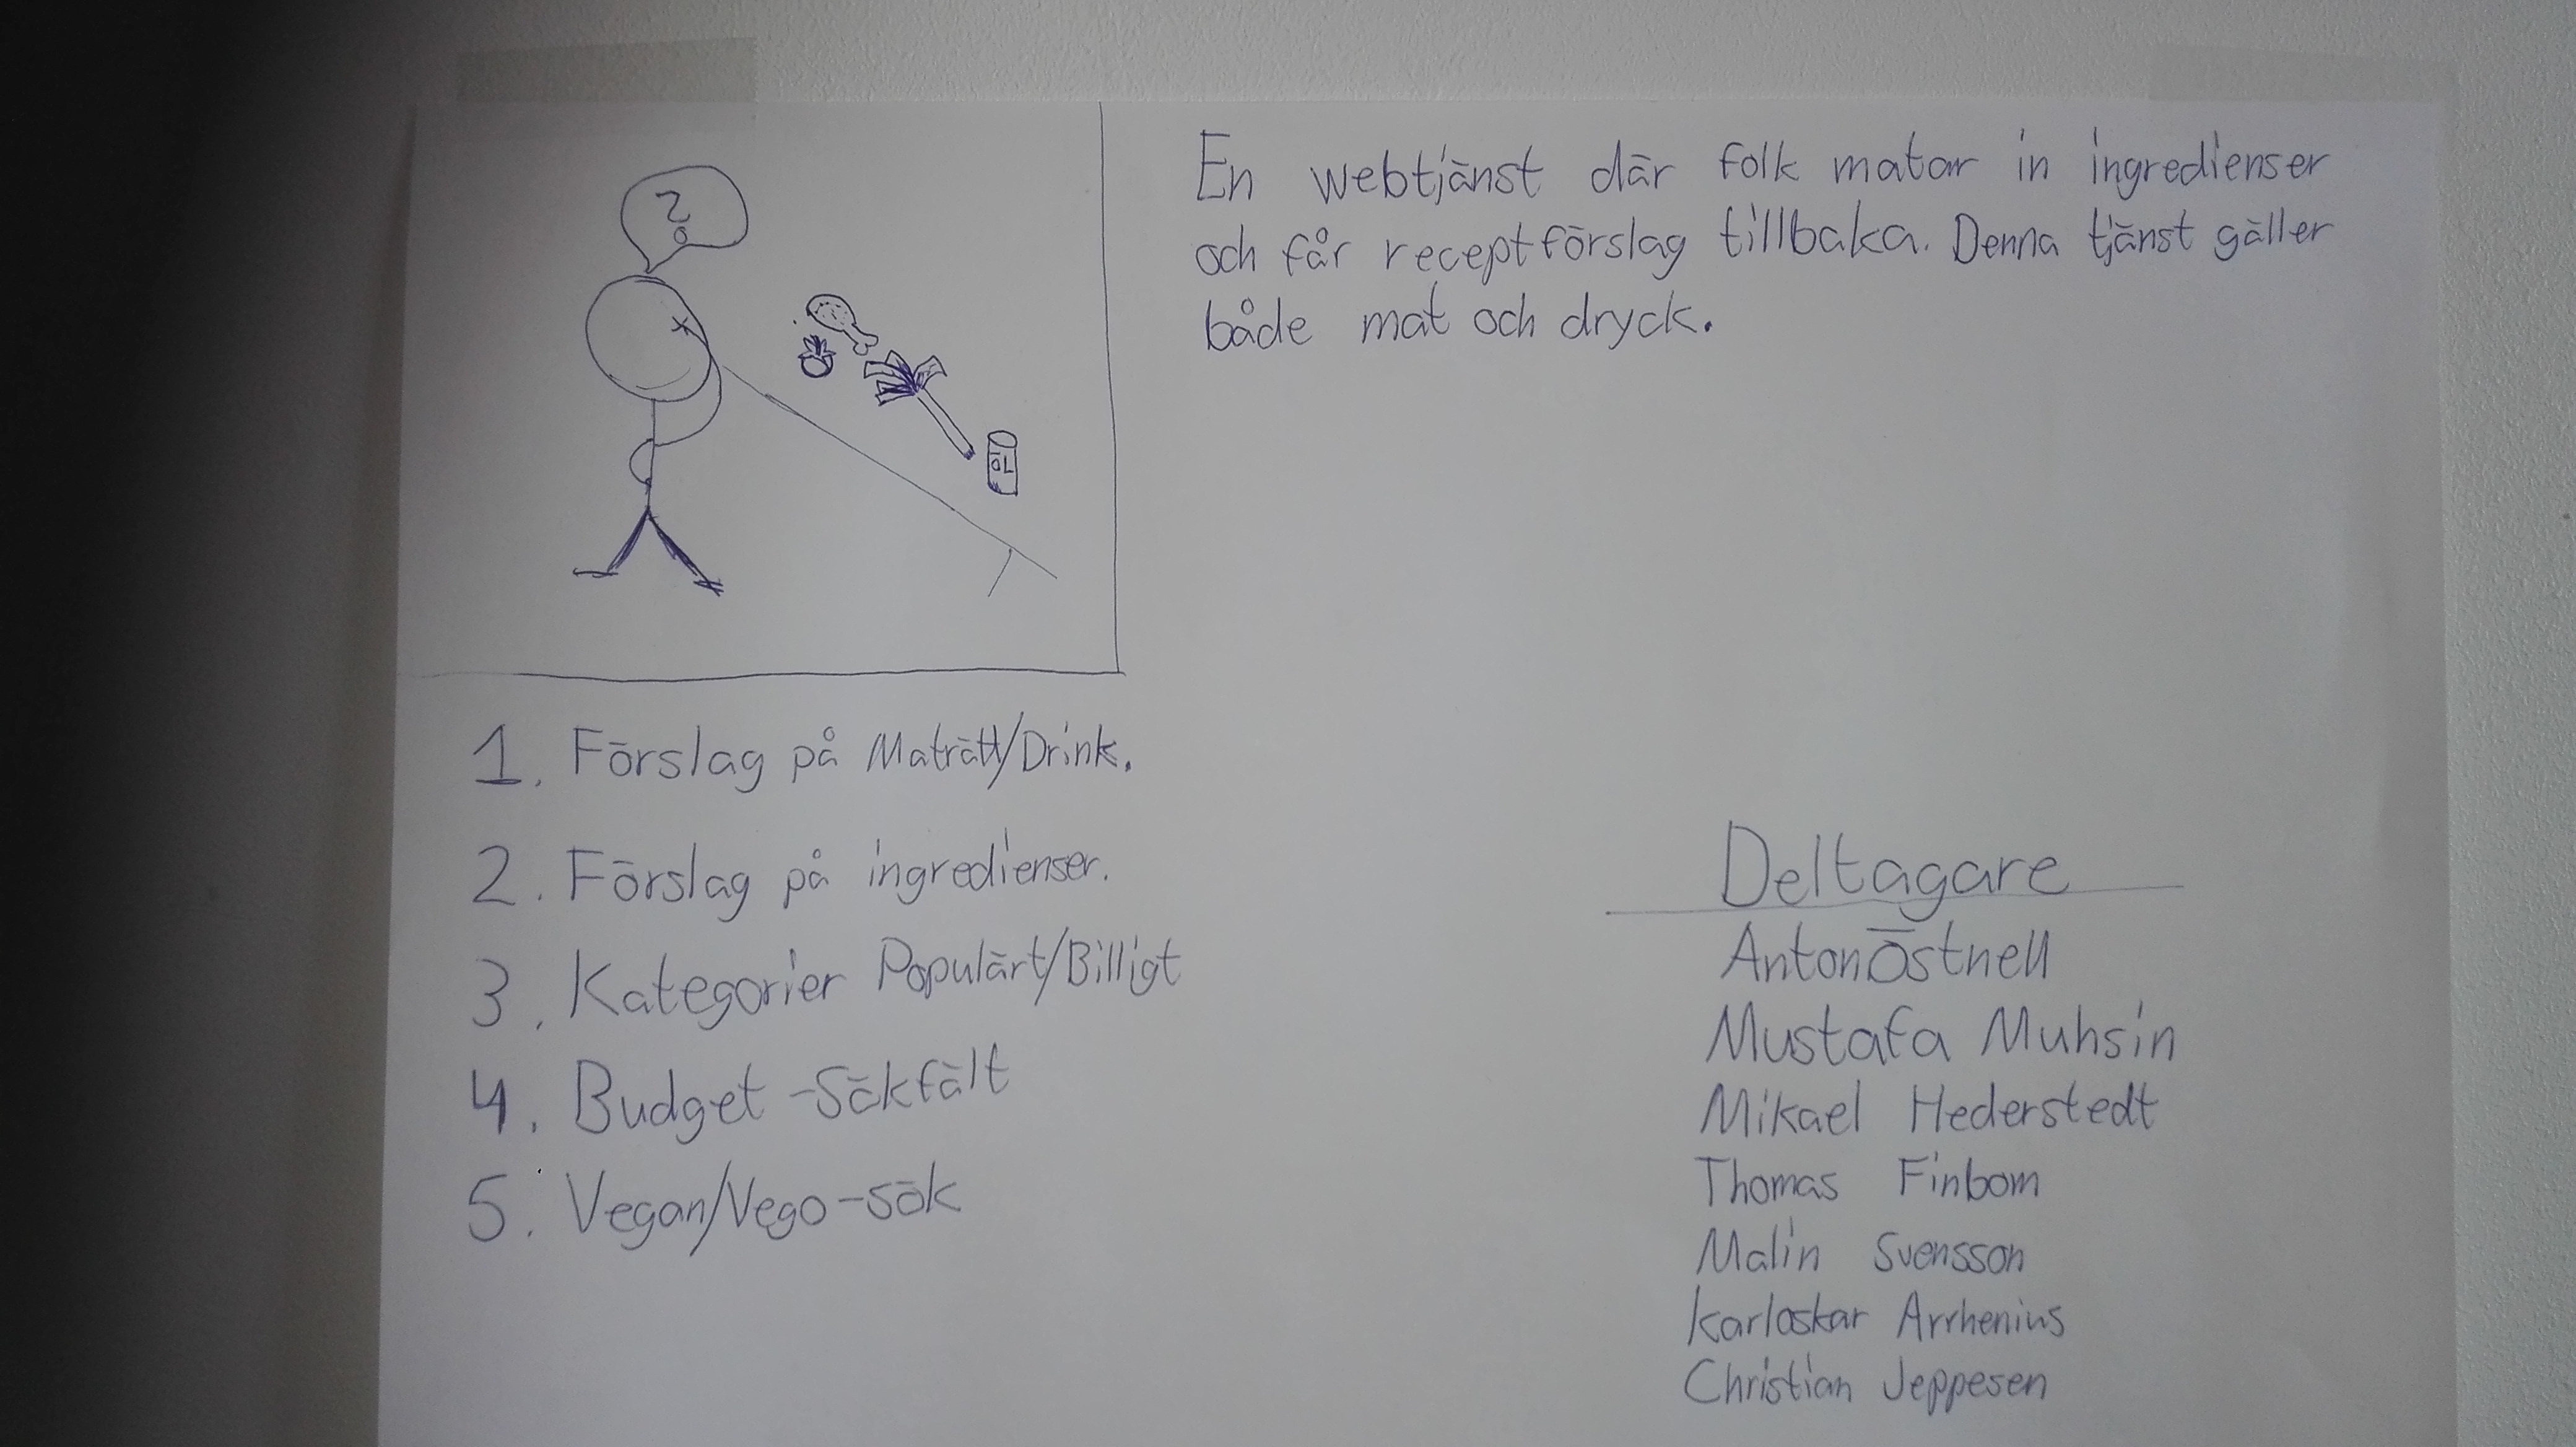 ?
ÖL
En webtjänst där folk matar in ingredienser
och får receptförslag tillbaka. Denna tjänst gäller
både mat och dryck.
1. Förslag på Maträtt/Drink.
2. Förslag på ingredienser.
3. Kategorier Populärt/Billigt
4. Budget-Sökfält
5. Vegan/Vego-sök
Deltagare
Anton Östnell
Mustafa Muhsin
Mikael Hederstedt
Thomas Finbom
Malin Svensson
Karloskar Arrhenius
Christian Jeppesen